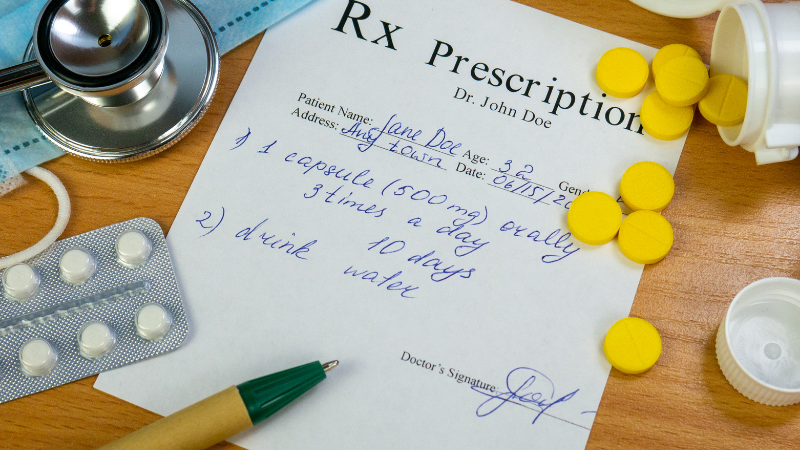 Rx Prescription
Dr. John Doe
Patient Name: Jane Doe Age: 32
Address: Anytown Date: 06/15/20
1) 1 capsule (500mg) orally
3 times a day
10 days
2) drink water
Doctor's Signature: